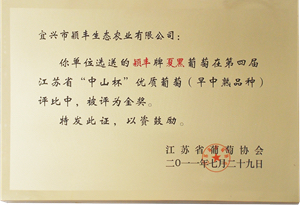 宜兴市颖丰生态农业有限公司：
你单位选送的颖丰牌夏黑葡萄在第四届
江苏省“中山杯”优质葡萄（早中熟品种）
评比中，被评为金奖。
特发此证，以资鼓励。
江苏省葡萄协会
二〇一一年七月二十九日